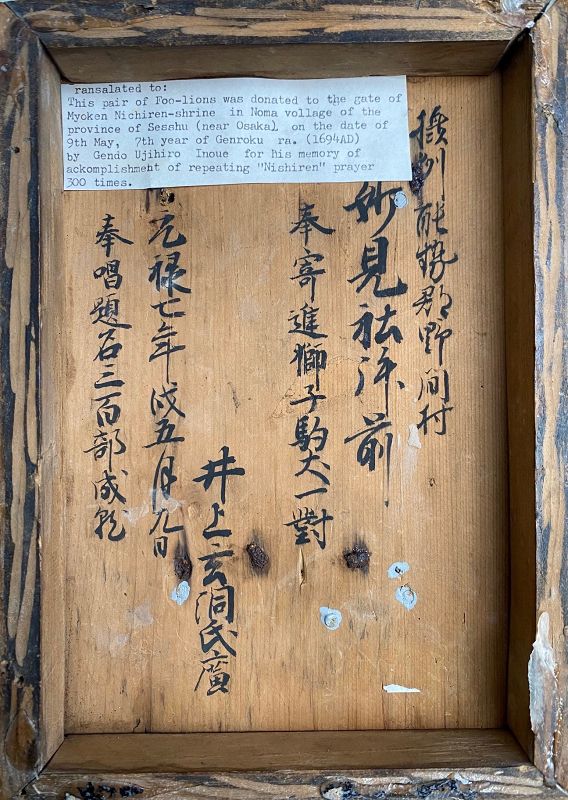 ransalated to:
This pair of Foo-lions was donated to the gate of
Myoken Nichiren-shrine in Noma vollage of the
province of Sesshu (near Osaka), on the date of
9th May, 7th year of Genroku ra. (1694AD)
by Gendo Ujihiro Inoue for his memory of
ackomplishment of repeating "Nishiren" prayer
300 times.
攝州能勢郡野間村
妙見社御前
奉寄進獅子駒犬一對
井上玄洞氏廣
元禄七年戌五月九日
奉唱題石三百部成就